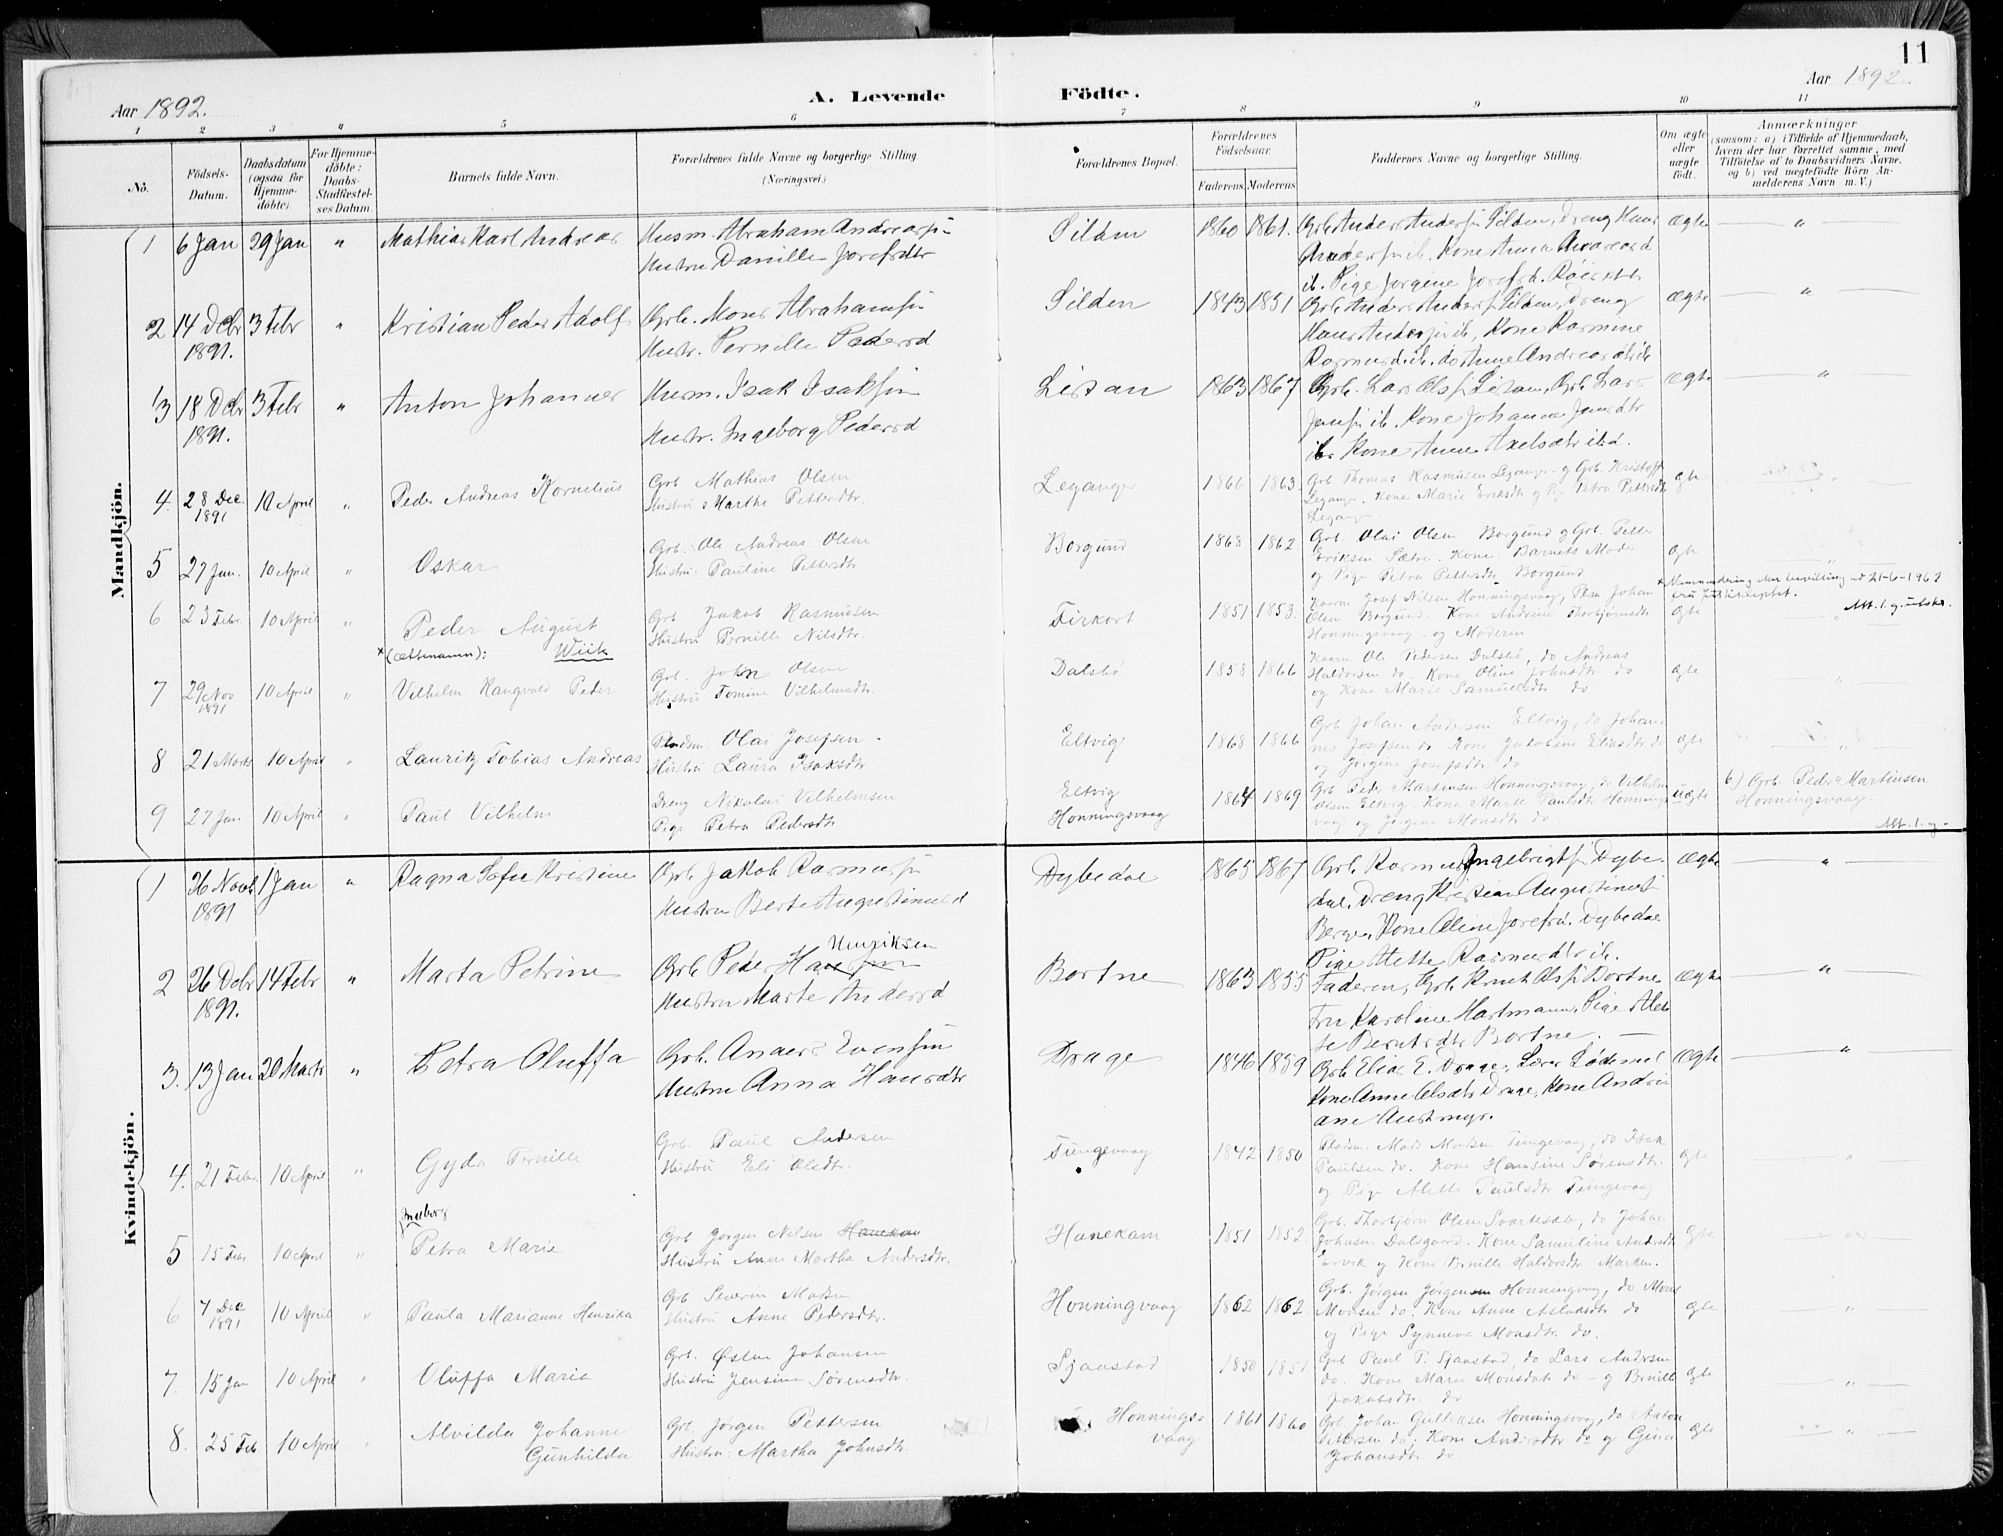 11
Aar 1892.
A. Levende Födte.
Aar 1892
1 2 3 4 5 6 7 8 9 10 11
No.
Födsels-Datum.
Daabsdatum (ogsaa for Hjemmedöbte).
For Hjemmedöbte: Daabs-Stadfæstelses Datum.
Barnets fulde Navn.
Forældrenes fulde Navne og borgerlige Stilling. (Næringsvei.)
Forældrenes Bopæl.
Forældrenes Födselsaar.
Faderens Moderens
Faddernes Navne og borgerlige Stilling.
Om ægte eller uægte födt.
Anmærkninger (saasom: a) i Tilfælde af Hjemmedaab, hvem der har forrettet samme, med Tilföielse af to Daabsvidners Navne, og b) ved uægtefödte Börn Anmelderens Navn m. V.)
Mandkjön.
1 6 Jan 29 Jan " Mathias Karl Andreas
Husm. Abraham Andreass.
Hustru Danille Josefsdtr
Silden 1860 1861.
Grb Anders Anders Silden, Dreng Hans
Anders ib. Kone Anna
ib. Pige Jørgine Josefsd.
ægte "
2 14 Debr 1891. 3 Febr " Kristian Peder Adolf
Grb. Mons Abrahams
Hustr. Pernille Pedersd
Silden 1843 1851
Grb Anders Anders Silden, Dreng
Hans Anders ib, Kone Rasmine
Rasmusd ib. do Anne Andreasdtr ib
ægte "
3 18 Debr 1891. 3 Febr " Anton Johannes
Husm. Isak Isaks
Hustr. Ingeborg Pedersd
Lisan 1863 1867
Grb. Lars Ols Lisan, Grb Lars
Jens ib. Kone Johanne Jensdtr
ib. Kone Anne Axelsdtr ibd.
ægte "
4. 28 Dec. 1891 10 April " Peder Andreas Kornelius
Grb Mathias Olsen
Hustru Marthe Pettersdtr.
Leganger 1866 1863.
Grb Thomas Rasmusen Leganger og Grb. Kristoff
Leganger. Kone Marie Eriksdtr. og Pige Petra Pettersdtr
Leganger
ægte "
5 27 Jan. 10 April " Oskar
Grb. Ole Andreas Olsen
Hustru Pauline Pettersdtr
Borgund 1868 1862
Grb Olai Olsen Borgund og Grb. Petter
Eriksen Sætre. Kone Barnets Moder
og Pige Petra Pettersdtr. Borgund
ægte "
6 23 Febr. 10 April " Peder August
x (ættenamn): Wiik
Grb Jakob Rasmusen
Hustru Pernille Nilsdtr.
Tirkort 1851 1853.
Josef Nilsen Honningsvaag, Johan
Olsen Borgund. Kone Andrine Thorbjørnsdtr
Honningsvaag og Moderen
ægte "
x Namnendring bevilling ad 21-6-1962
frå Justisdeptet.
Att. 1. g. utskr.
7 29 Nov 1891 10 April " Vilhelm Rangvald Peder
Grb. John Olsen
Hustru Tomine Vilhelmsdtr.
Dalsbø 1858 1866
Kaarm Ole Pedersen Dalsbø, do Andreas
Haldorsen do. Kone Oline Johnsdtr do
og Kone Marie Samuelsdtr do
ægte "
8 21 Marts 10 April " Lauritz Tobias Andreas
Pladsm. Olai Josefsen
Hustru Laura Isaksdtr
Eltvig 1868 1866
Grb Johan Andersen Eltvig, do Johan-
nes Josefsen do. Kone Jakobine Eliasdtr do
og Jørgine Josefsdtr do
ægte "
9 27 Jan 10 April " Paul Vilhelm
Dreng Nikolai Vilhelmsen
Pige Petra Pedersdtr
Eltvig
Honningsvaag
1864 1869
Grb Peder Martensen Honningsvaag, do Vilhelm
Olsen Eltvig. Kone Marte Paulsdtr Honnings-
vaag og Jørgine Monsdtr do.
uægte
b.) Grb. Peder Martinsen
Honningsvaag.
Att. 1. g.
Kvindekjön.
1 26 Novbr 1891 1 Jan " Ragna Sofie Kristine
Grb Jakob Rasmus
Hustru Berte Augustinusd
Dybedal 1865 1867
Grb Rasmus Ingebrigts Dybe-
dal, Dreng Kristian Augustinus
Berge, Kone Oline Josefsd. Dybedal
Pige Mette Rasmusdtr ib.
ægte "
2 26 Debr 1891. 14 Febr " Marta Petrine
Grb Peder Hans Henriksen
Hustru Marte Andersd
Bortne 1863 1855
Faderen, Grb. Knut Ols Bortne
Fru Karoline Hartmann, Pige Alet-
te Berntsdtr Bortne.
ægte "
3. 13 Jan 20 Marts " Petra Oluffa
Grb. Anders Evens
Hustru Anna Hansdtr
Drage 1846 1859
Grb Elias E. Drage, Lærer Lødemel
Kone Anne Olsdtr Drage, Kone Andri-
ane Austmyr.
ægte "
4. 21 Febr. 10 April " Gyda Pernille
Grb. Paul Andersen
Hustru Eli Olsdtr.
Tungevaag 1842 1850
Pladsm. Mads Madsen Tungevaag, do Isak
Paulsen do. Kone Hansine Sørensdtr.
og Pige Alette Paulsdtr. Tungevaag
ægte "
5 15 Febr 10 April " Ingeborg Petra Marie
Grb Jørgen Nilsen Hanekam
Hustru Anne Martha Andersdtr.
Hanekam 1851 1852
Grb. Thorbjørn Olsen Svartesdal, do Johan
Johnsen Dalsgaard. Kone Samuline Andersdtr
Ervik og Kone Pernille Haldorsdtr. Marken.
ægte "
6 7 Dec 1891 10 April " Paula Marianne Henrika
Grb Severin Madsen
Hustru Anne Pedersdtr.
Honningvaag 1862 1862
Grb. Jørgen Jørgensen Honningvaag, do Mons
Monsen do. Kone Anne Aslaksdtr. do
og Pige Synneve Monsdtr. do.
ægte "
7. 15 Jan 10 April " Oluffa Marie
Grb. Østen Johansen
Hustru Jensine Sørensdtr.
Sjaastad 1850 1851
Grb. Paul P. Sjaastad, do Lars Andersen
do. Kone Marie Monsdatr do og Pernille
Jakobsdtr. do
ægte "
8. 25 Feb 10 April " Alvilda Johanne
Gunhilda
Grb. Jørgen Pettersen
Hustru: Martha Johnsdtr.
Honnings-
vaag
1861 1860
Grb. Johan Gulliksen Honningsvaag, do Anton
Pettersen do. Kone Andersdtr do og Gina
Johansdtr do
ægte "